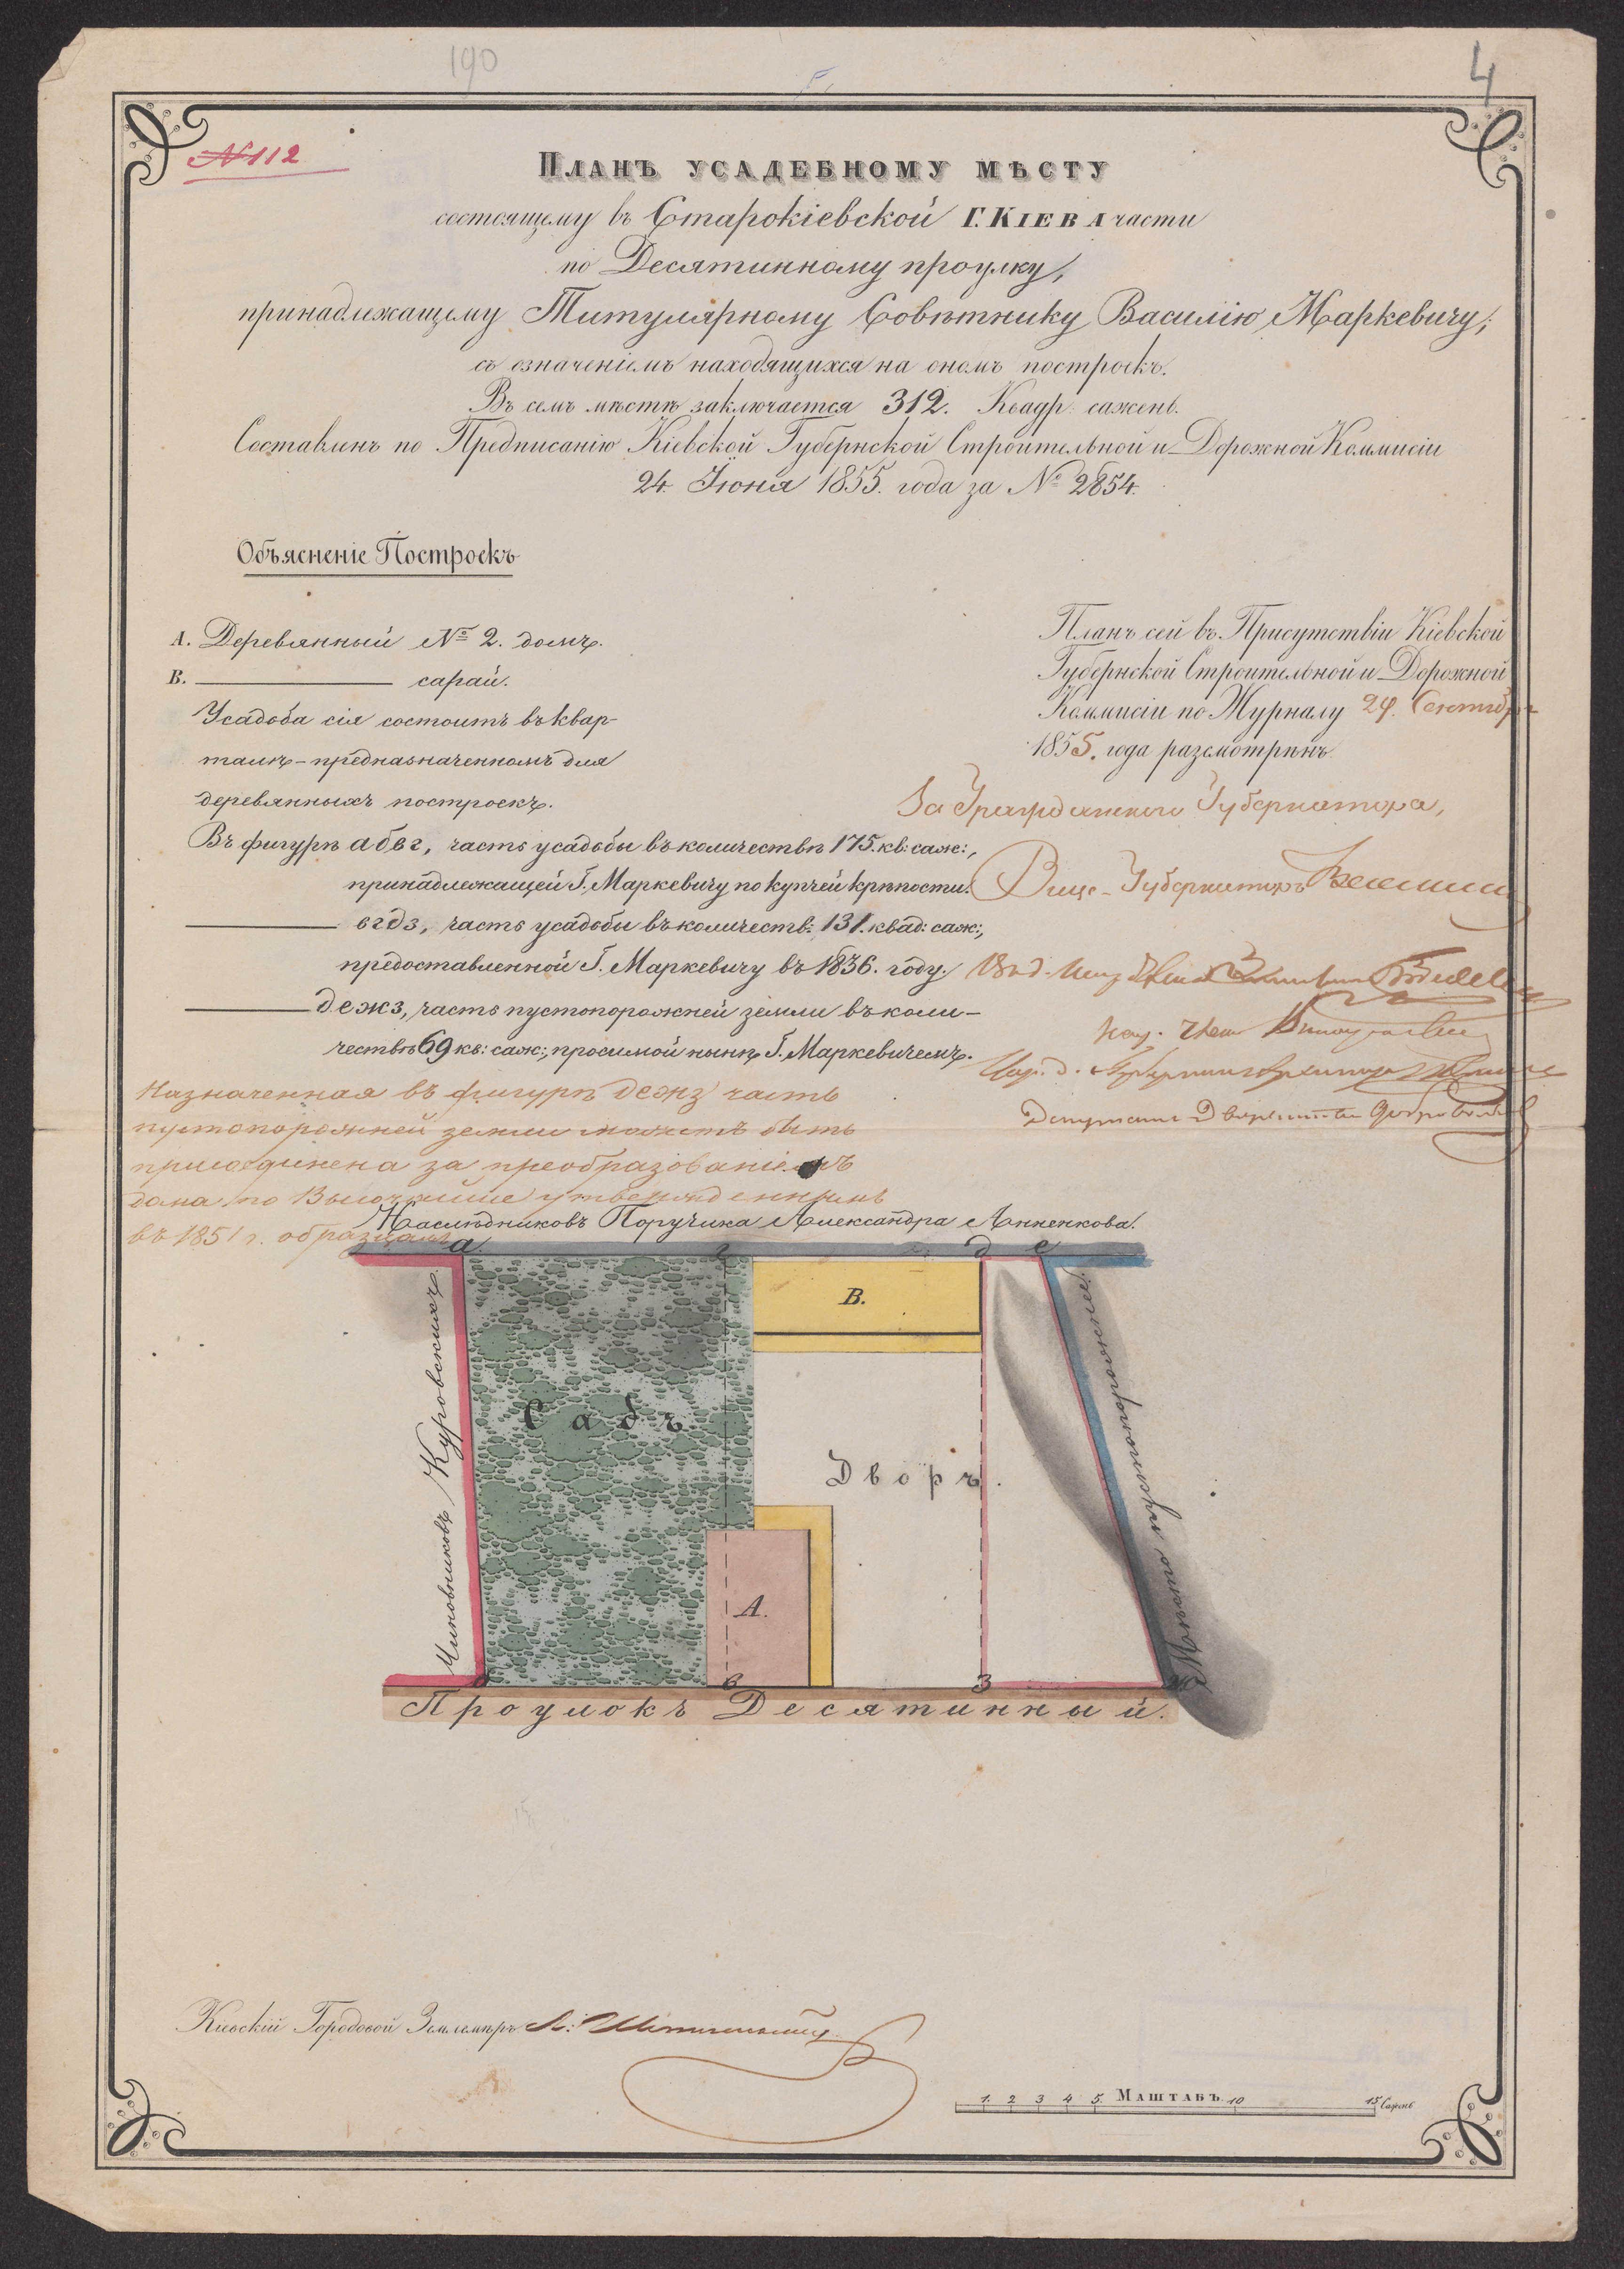 190
4
№ 112
Планъ усадебному мѣсту
состоящему въ Старокіевской Г. Кіева части
по Десятинному проулку,
принадлежащему Титулярному Совѣтнику Василію Маркевичу;
съ означеніемъ находящихся на ономъ построекъ.
Въ семъ мѣстѣ заключается 312. Квадр: сажень.
Составленъ по Предписанію Кіевской Губернской Строительной и Дорожной Коммисіи
24. Іюня 1855. года за № 2854.
Объясненіе Построекъ
А. Деревянный № 2. домъ.
В. ——— сарай.
Усадьба сія состоитъ въ квар-
талѣ - предназначенномъ для
деревянныхъ построекъ.
Въ фигурѣ а б в г, часть усадьбы въ количествѣ 175. кв: саж:,
принадлежащей Г. Маркевичу по купчей крѣпости.
——— в г д з, часть усадьбы въ количеств: 131. квад: саж:,
предоставленной Г. Маркевичу въ 1836. году.
——— д е ж з, часть пустопорожней земли въ коли-
чествѣ 69 кв: саж:, просимой нынѣ Г. Маркевичемъ.
Назначенная въ фигурѣ дежз часть
пустопорожней земли можетъ быть
присоединена за преобразованіемъ
дома по Высочайше утвержденнымъ
въ 1851 г. образцамъ
Планъ сей въ Присутствіи Кіевской
Губернской Строительной и Дорожной
Коммисіи по Журналу 24. Сентября
1855. года разсмотрѣнъ
За Гражданскаго Губернатора,
Вице-Губернаторъ
Депутатъ Дворянства
Наслѣдниковъ Поручика Александра Анненкова.
а г д е
В.
Чиновниковъ Куровскихъ.
Садъ
Дворъ.
А.
Мѣсто пустопорожнее
в з
Проулокъ Десятинный.
Кіевскій Городовой Землемѣръ
1. 2 3 4 5. Маштабъ. 10 15 Сажень